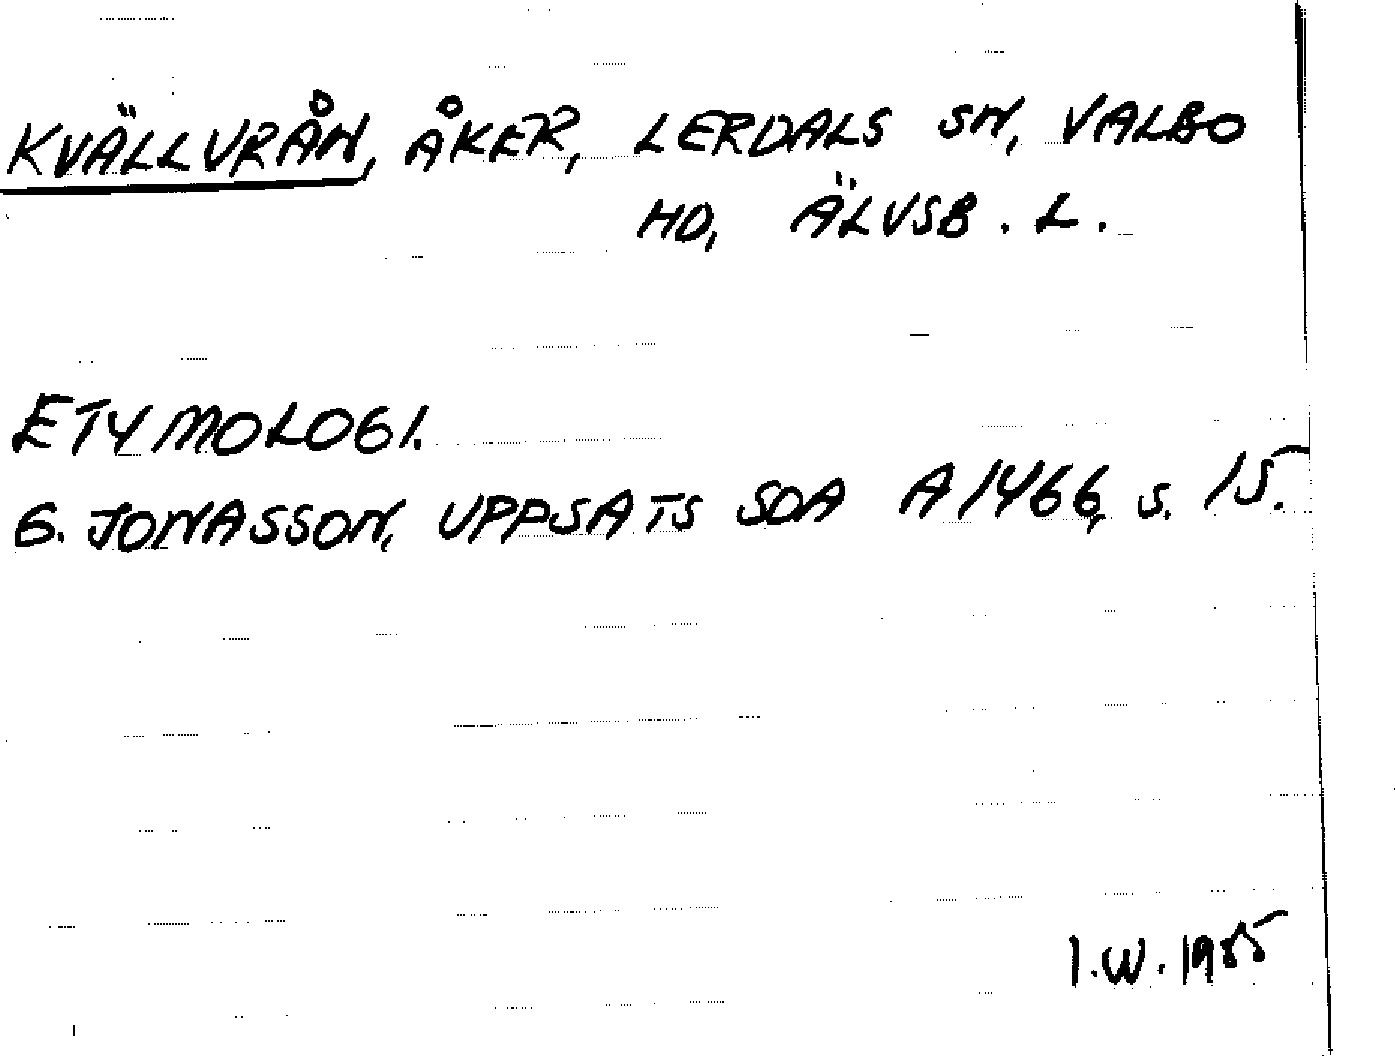 KVÄLLVRÅN, ÅKER, LERDALS SN, VALBO
HD, ÄLVSB. L.
ETYMOLOGI.
G. JONASSON, UPPSATS SOA A1466, s. 15.
I.W. 1985